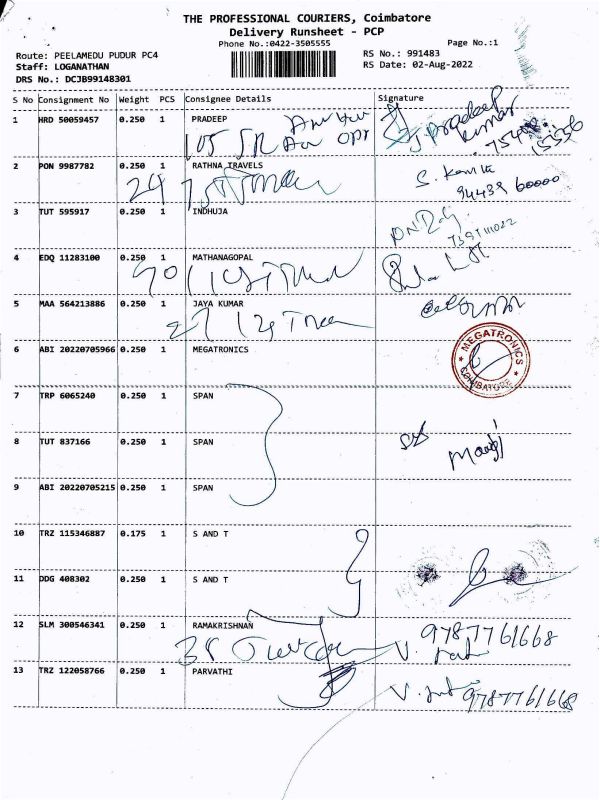 THE PROFESSIONAL COURIERS, Coimbatore
Delivery Runsheet - PCP
Phone No.:0422-3505555
Page No.:1
Route: PEELAMEDU PUDUR PC4
RS No.: 991483
Staff: LOGANATHAN
RS Date: 02-Aug-2022
DRS No.: DCJB99148301
S No Consignment No Weight PCS Consignee Details Signature
1 HRD 50059457 0.250 1 PRADEEP
105 SR
Pradeep
Kumar
2 PON 9987782 0.250 1 RATHNA TRAVELS
24
94439 60000
3 TUT 595917 0.250 1 INDHUJA
4 EDQ 11283100 0.250 1 MATHANAGOPAL
5 MAA 564213886 0.250 1 JAYA KUMAR
27
6 ABI 20220705966 0.250 1 MEGATRONICS
MEGATRONICS
COIMBATORE
7 TRP 6065240 0.250 1 SPAN
8 TUT 837166 0.250 1 SPAN
9 ABI 20220705215 0.250 1 SPAN
10 TRZ 115346887 0.175 1 S AND T
11 DDG 408302 0.250 1 S AND T
12 SLM 300546341 0.250 1 RAMAKRISHNAN
9787761668
38
13 TRZ 122058766 0.250 1 PARVATHI
9787761668